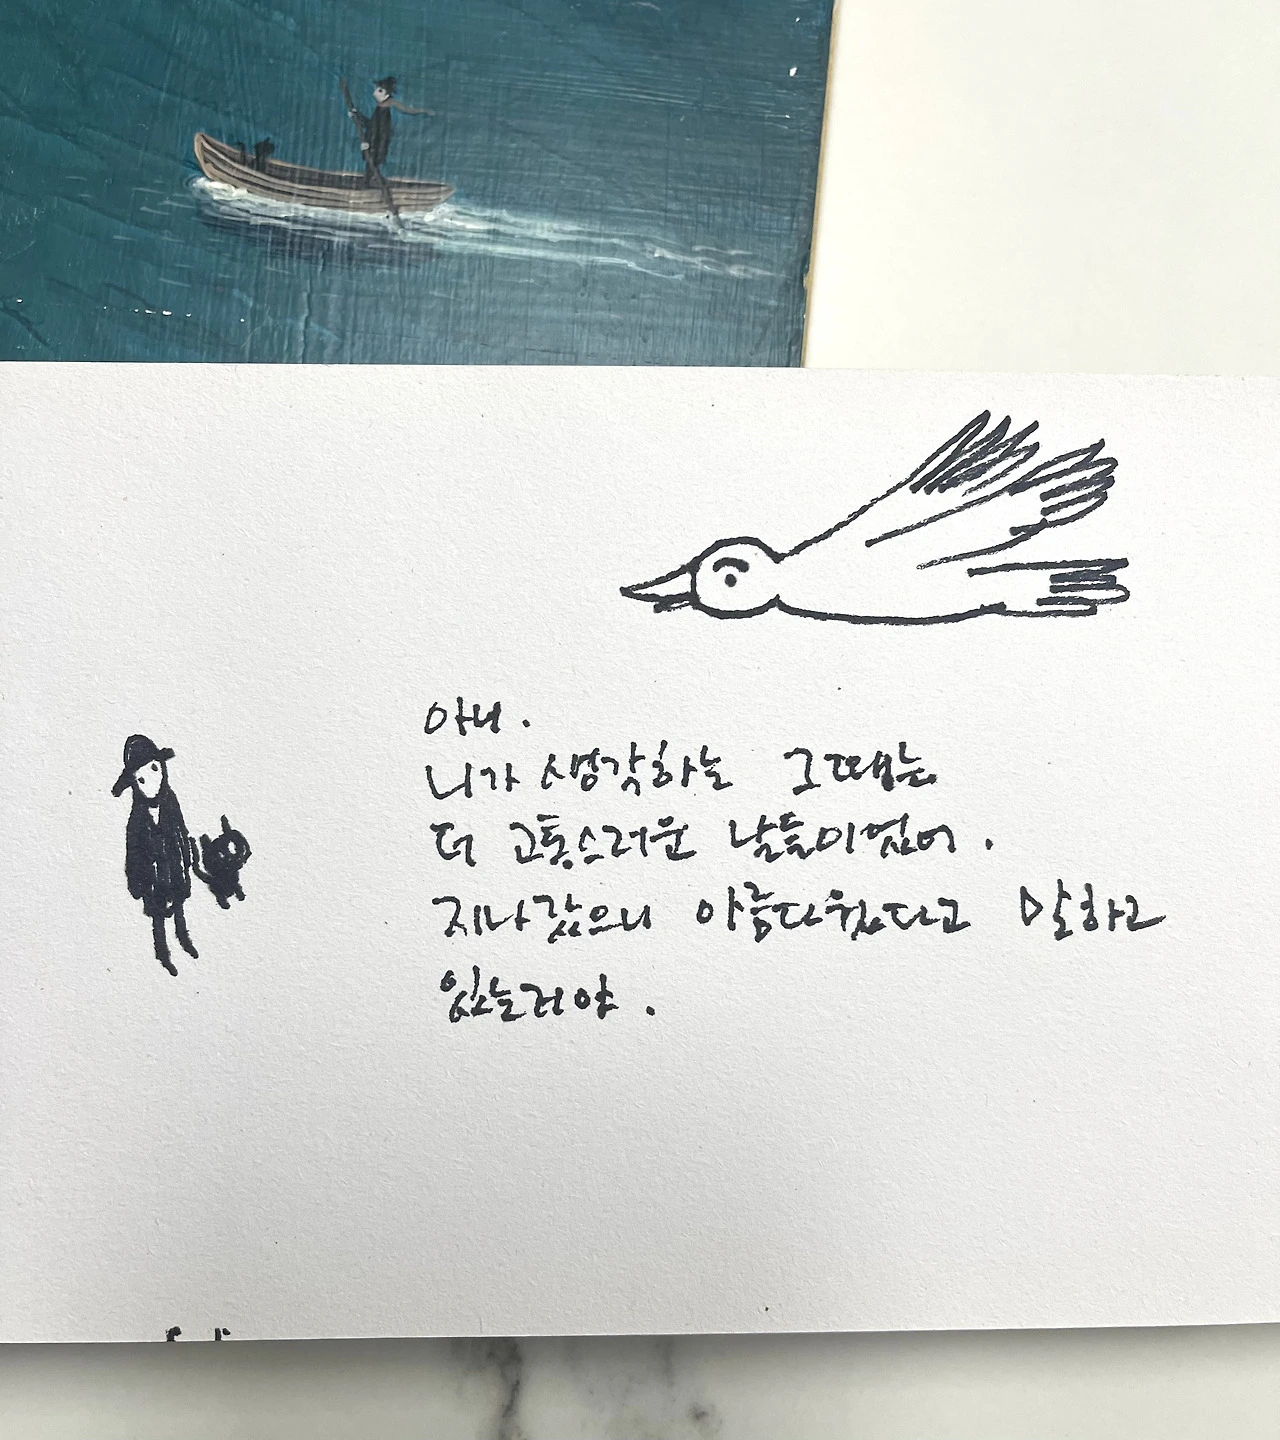 아니.
니가 생각하는 그때는
더 고통스러운 날들이었어.
지나갔으니 아름다웠다고 말하고
있는거야.